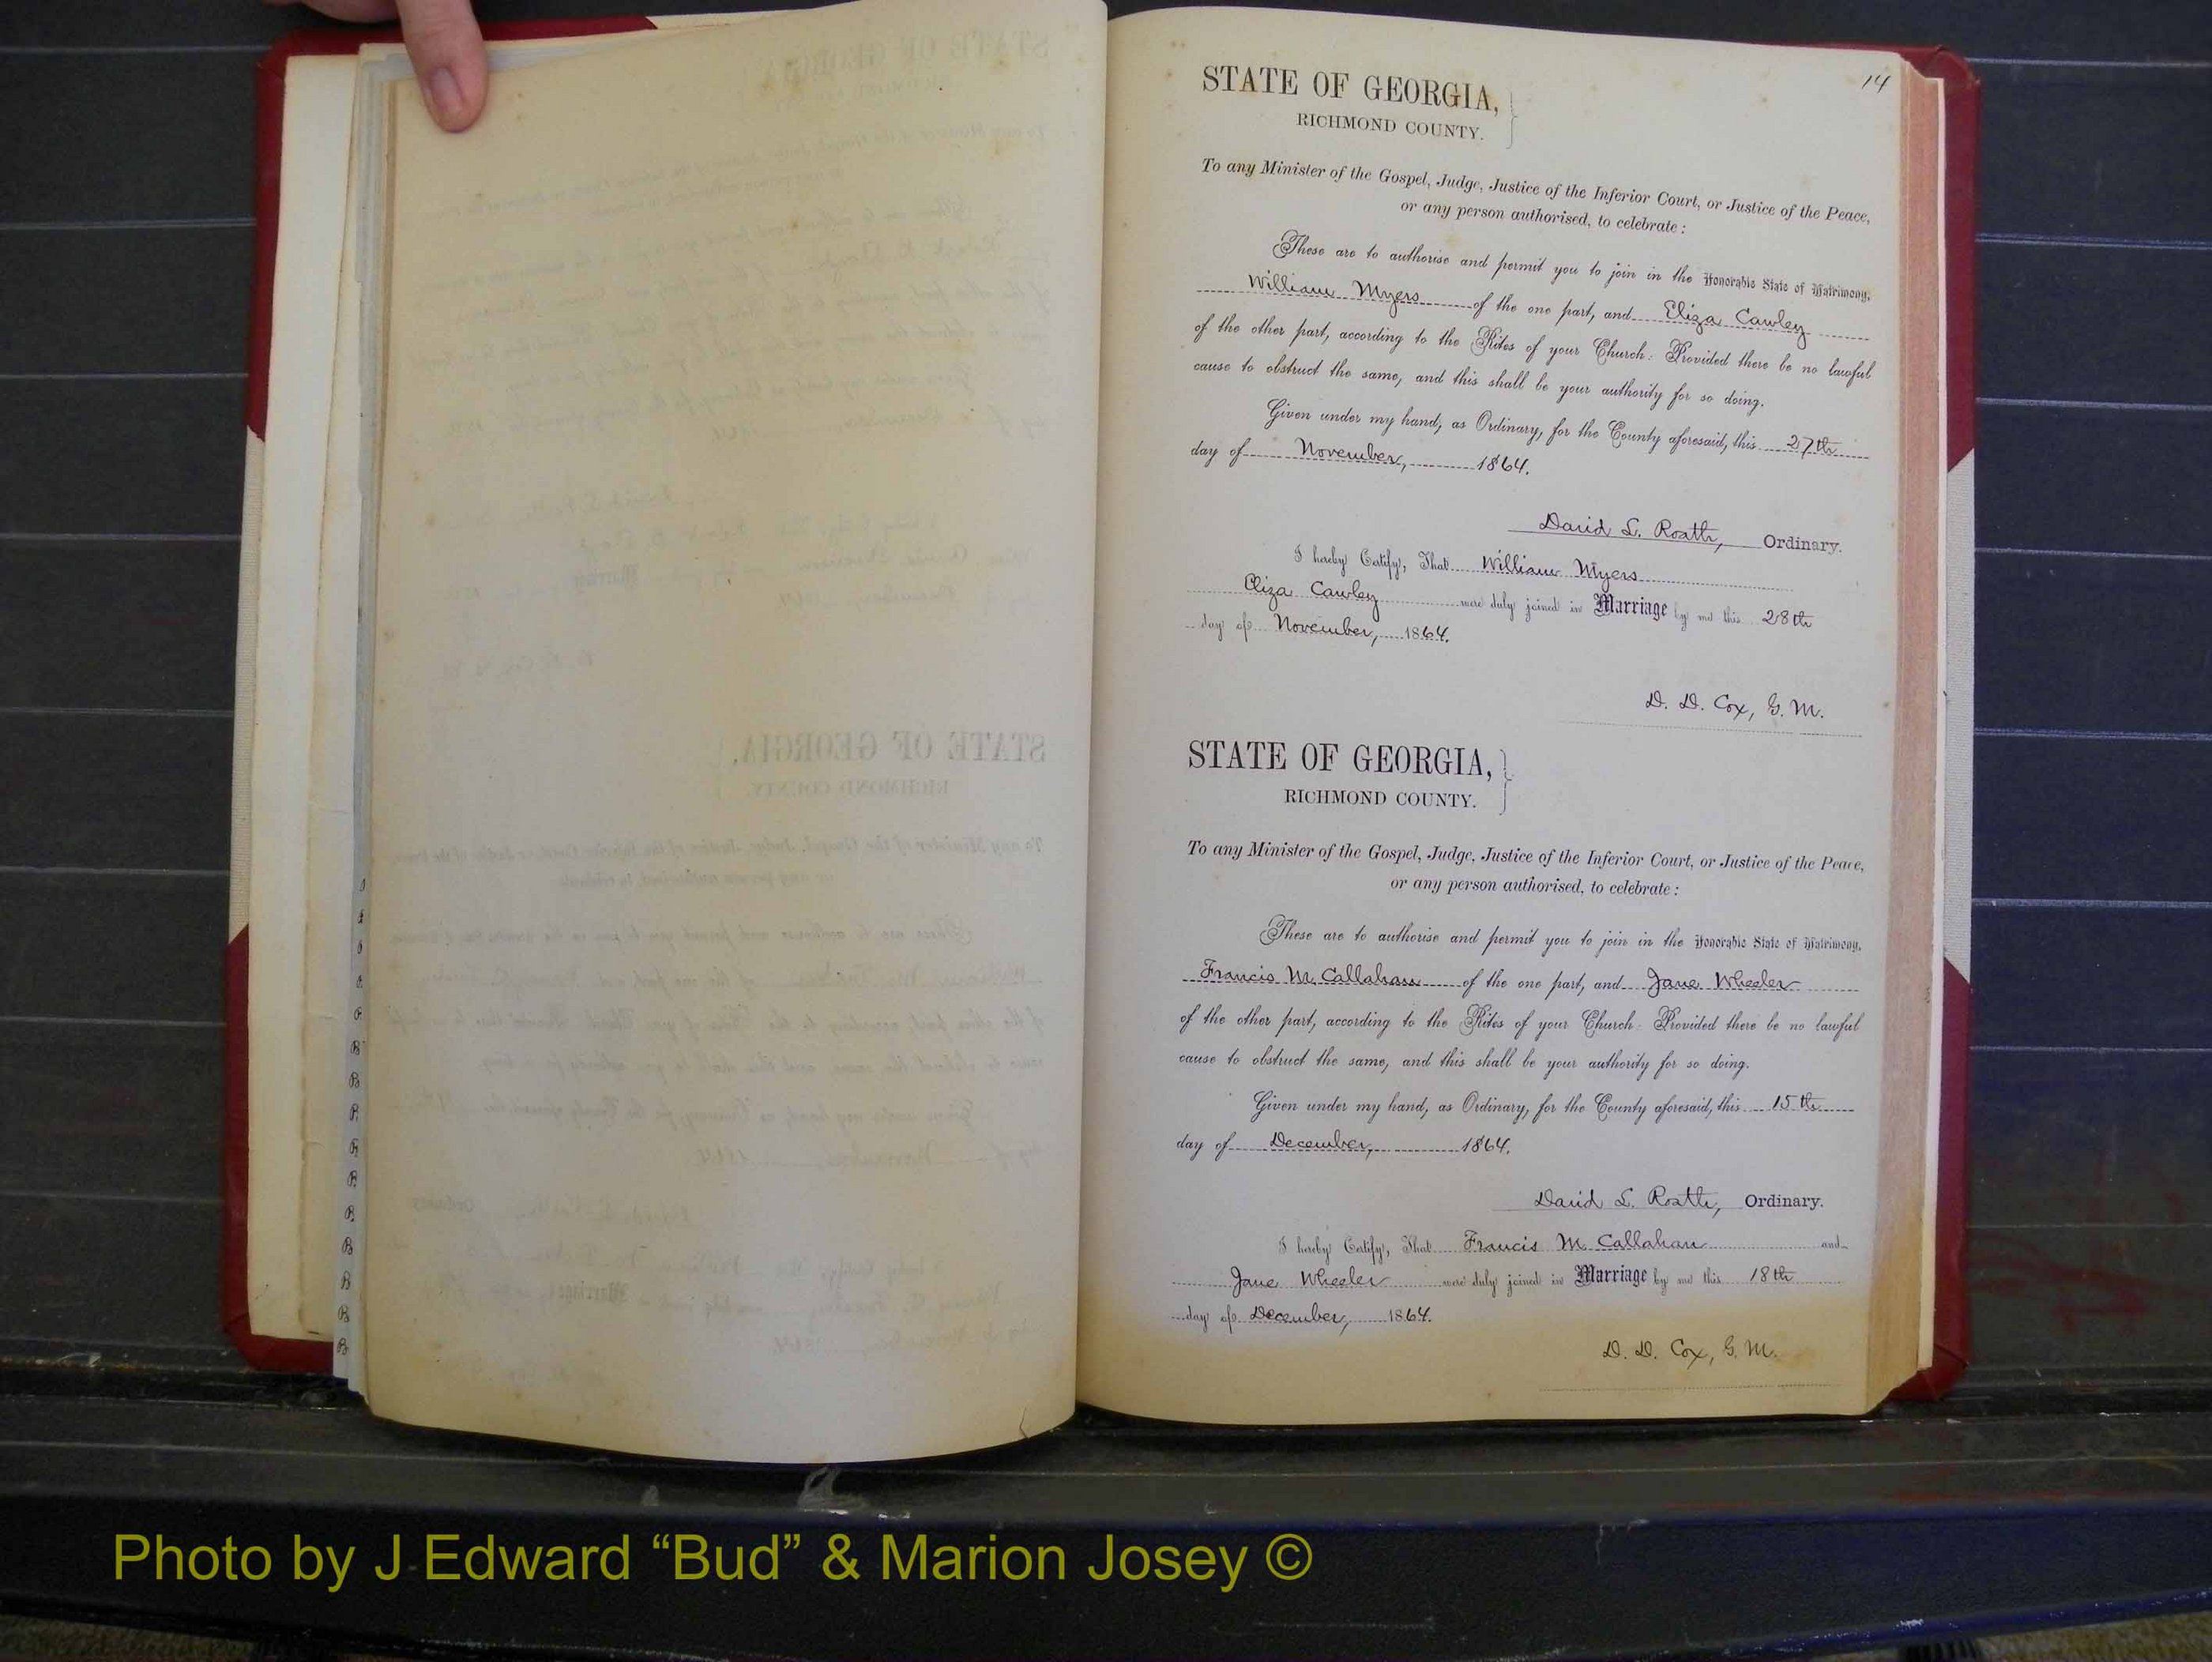 14
STATE OF GEORGIA,
RICHMOND COUNTY.
To any Minister of the Gospel, Judge, Justice of the Inferior Court, or Justice of the Peace,
or any person authorised, to celebrate:
These are to authorise and permit you to join in the Honorable State of Matrimony,
William Myers of the one part, and Eliza Cawley
of the other part, according to the Rites of your Church: Provided there be no lawful
cause to obstruct the same, and this shall be your authority for so doing.
Given under my hand, as Ordinary, for the County aforesaid, this 27th
day of November, 1864.
David L. Roath, Ordinary.
I hereby Certify, That William Myers
Eliza Cawley were duly joined in Marriage by me this 28th
day of November, 1864.
D. D. Cox, G. M.
STATE OF GEORGIA,
RICHMOND COUNTY.
To any Minister of the Gospel, Judge, Justice of the Inferior Court, or Justice of the Peace,
or any person authorised, to celebrate:
These are to authorise and permit you to join in the Honorable State of Matrimony,
Francis M Callahan of the one part, and Jane Wheeler
of the other part, according to the Rites of your Church: Provided there be no lawful
cause to obstruct the same, and this shall be your authority for so doing.
Given under my hand, as Ordinary, for the County aforesaid, this 15th
day of December, 1864.
David L. Roath, Ordinary.
I hereby Certify, That Francis M Callahan and
Jane Wheeler were duly joined in Marriage by me this 18th
day of December, 1864.
D. D. Cox, G. M.
Photo by J Edward “Bud” & Marion Josey ©